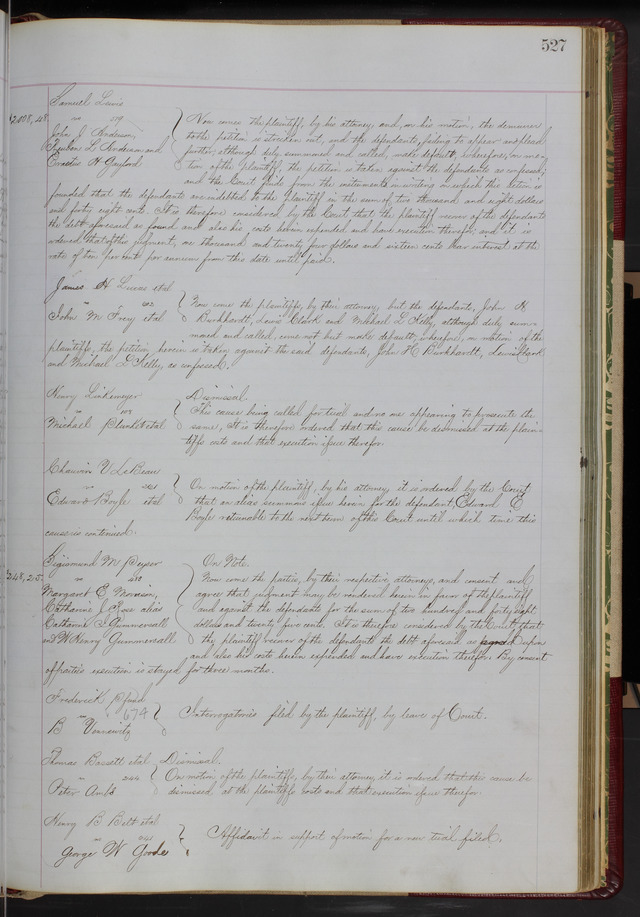 527
Samuel Lewis
$2,008,48.
vs 279
John J. Anderson,
Reuben L. Anderson and
Erastus H. Gaylord
Now comes the plaintiff, by his attorney, and, on his motion, the demurrer
to the petition is stricken out, and the defendants, failing to appear and plead
further, although duly summoned and called, make default; wherefore, on mo-
tion of the plaintiff, the petition is taken against the defendants as confessed;
and the Court finds from the instruments in writing on which this action is
founded that the defendants are indebted to the plaintiff in the sum of two thousand and eight dollars
and forty eight cents. It is therefore considered by the Court that the plaintiff recover of the defendants
the debt aforesaid, as found and also his costs herein expended and have execution therefor, and it is
ordered that of this judgment, one thousand and twenty four dollars and sixteen cents bear interest at the
rate of ten per cent per annum from this date until paid.
James H Lucas etal
vs
John M Frey etal
Now come the plaintiffs, by their attorney, but the defendants, John H.
Burkhardt, Lewis Clark and Michael L Kelly, although duly sum-
moned and called, come not but make default; wherefore, on motion of the
plaintiffs, the petition herein is taken against the said defendants, John H Burkhardt, Lewis Clark
and Michael L Kelly, as confessed.
Henry Linkemeyer
vs 103
Michael Plunkett etal
Dismissal.
This cause being called for trial and no one appearing to prosecute the
same, it is therefore ordered that this cause be dismissed at the plain-
tiffs costs and that execution issue therefor.
Chauvin V LeBeau
vs
Edward Boyle etal
On motion of the plaintiff, by his attorney, it is ordered by the Court
that an alias summons issue herein for the defendant, Edward E
Boyle returnable to the next term of this Court until which time this
cause is continued.
Sigismund M Peyser
$248,25.
vs
Margaret E Morrison,
Catharine J Rose alias
Catharine J Gummersall
and W Henry Gummersall
On Note.
Now come the parties, by their respective attorneys, and consent and
agree that judgment may be rendered herein in favor of the plaintiff
and against the defendants for the sum of two hundred and forty eight
dollars and twenty five cents. It is therefore considered by the Court that
the plaintiff recover of the defendants the debt aforesaid as agreed upon
and also his costs herein expended and have execution therefor. By consent
of parties execution is stayed for three months.
Frederick
vs 674
B
Interrogatories filed by the plaintiff, by leave of Court.
Thomas Bassett etal
vs 244
Peter
Dismissal.
On motion of the plaintiffs, by their attorney, it is ordered that the cause be
dismissed at the plaintiffs costs and that execution issue therefor.
Henry B Belt etal
vs 241
George W Goode
Affidavit in support of motion for a new trial filed.